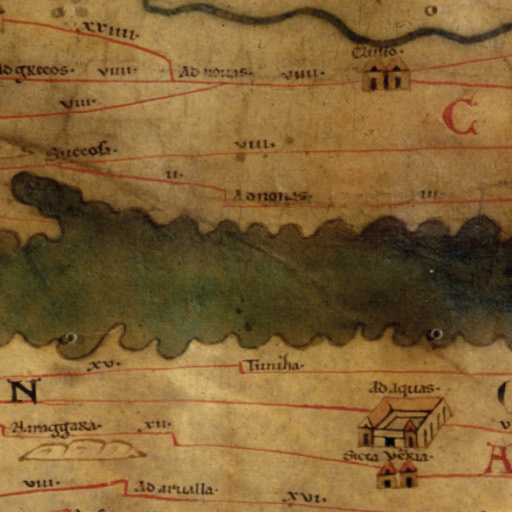 XXIIII·
Clusio·
Ad grecos· VIIII· Ad nouas· VIIII·
VIII· C
Succosa· VIII·
II·
Ad nonas· III·
XV· Tuniẜa·
N
Ad aquas·
Maraggara· XII·
Sicca Veria·
A
VIII· Ad arualla·
XVI·